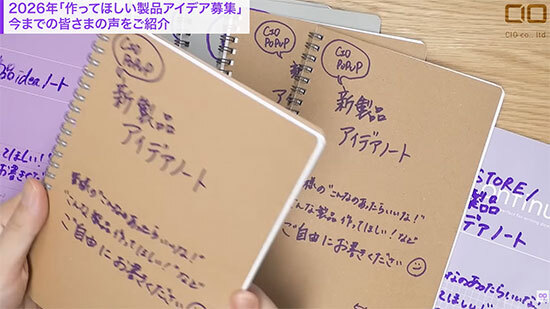 2026年「作ってほしい製品アイデア募集」
今までの皆さまの声をご紹介
CIO
CIO co., ltd
品ideaノート
てほしい!
お書きくだ
CIO
POPUP
新製品
アイデアノート
皆様の"こんなのあったらいいな!"
"こんな製品作ってほしい!"など
ご自由にお書きください
CIO
POPUP
新製品
アイデアノート
様の"こんなのあったらいいな!"
んな製品作ってほしい!"など
ご自由にお書きください
STORE/
製品
デアノート